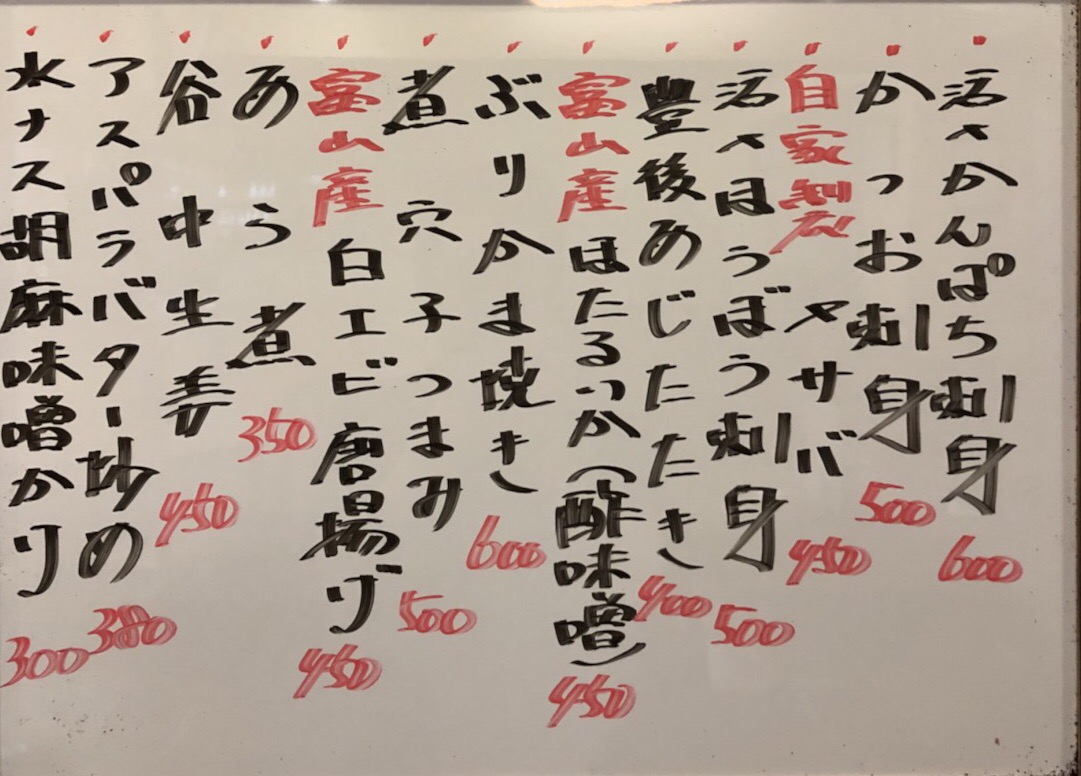 活〆かんぱち刺身 600
かつお刺身 500
自家製〆サバ 450
活〆ほうぼう刺身 500
豊後あじたたき 400
富山産ほたるいか(酢味噌) 450
ぶりかま焼き 600
煮穴子つまみ 500
富山産白エビ唐揚げ 450
あら煮 350
谷中生姜 450
アスパラバター炒め 380
水ナス胡麻味噌かけ 300